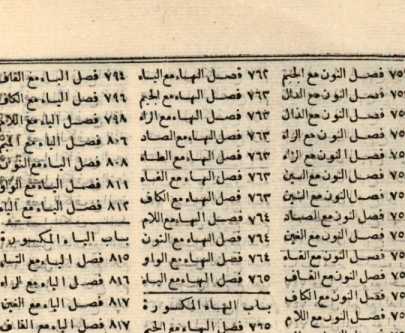 فصل النون مع الجيم
فصل النون مع الدال
فصل النون مع الذال
فصل النون مع الراء
فصل النون مع الزاء
فصل النون مع السين
فصل النون مع الشين
فصل النون مع الصاد
فصل النون مع الغين
فصل النون مع الفاء
فصل النون مع القاف
فصل النون مع الكاف
فصل النون مع اللام
٧٦٢ فصل الهاء مع الباء
٧٦٣ فصل الهاء مع الجيم
٧٦٣ فصل الهاء مع الراء
٧٦٣ فصل الهاء مع الصاد
٧٦٣ فصل الهاء مع الطاء
٧٦٣ فصل الهاء مع الفاء
٧٦٣ فصل الهاء مع الكاف
٧٦٤ فصل الهاء مع اللام
٧٦٤ فصل الهاء مع النون
٧٦٤ فصل الهاء مع الواو
٧٦٥ فصل الهاء مع الياء
باب الهاء المكسورة:
٧٦٥ فصل الهاء مع الجيم
٧٩٤ فصل الياء مع القاف
٧٩٦ فصل الياء مع الكاف
٧٩٨ فصل الياء مع اللام
٨٠٦ فصل الياء مع الميم
٨٠٨ فصل الياء مع النون
٨١١ فصل الياء مع الواو
٨١٢ فصل الياء مع الياء
باب الياء المكسورة:
٨١٥ فصل الياء مع التاء
٨١٦ فصل الياء مع الراء
٨١٧ فصل الياء مع الغين
٨١٧ فصل الياء مع القاف